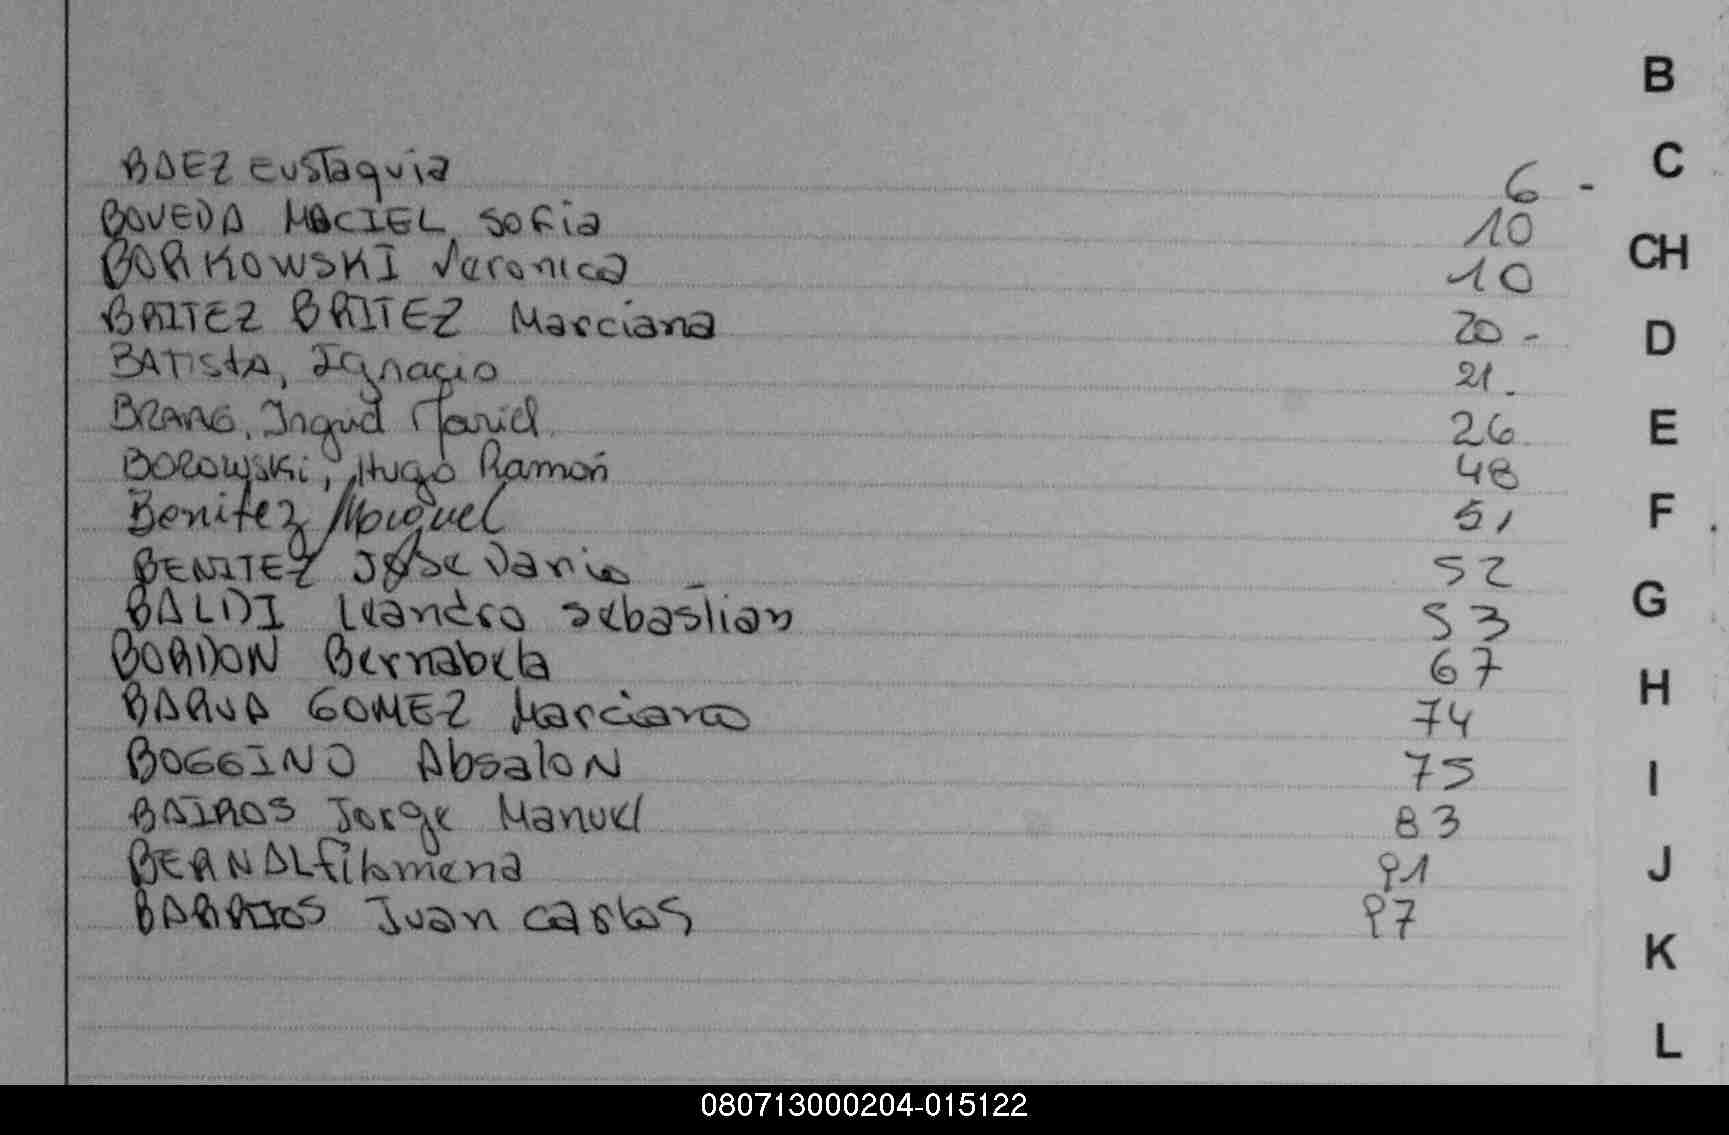 B
BAEZ Eustaquia 6 - C
BOVEDA MACIEL Sofia 10
BORKOWSKI Veronica 10 CH
BRITEZ BRITEZ Marciana 20 - D
BATISTA, Ignacio 21.
BRANG, Ingrid Mariel 26 E
BOROWSKI, Hugo Ramón 48
Benitez Miguel 51 F
BENITEZ Jose Dario 52
BALDI Leandro Sebastian 53 G
BORDON Bernabela 67
BARUA GOMEZ Marciano 74 H
BOGGINO Absalon 75 I
BAIROS Jorge Manuel 83
BERNAL filomena 91 J
BARRIOS Juan Carlos 97
K
L
080713000204-015122